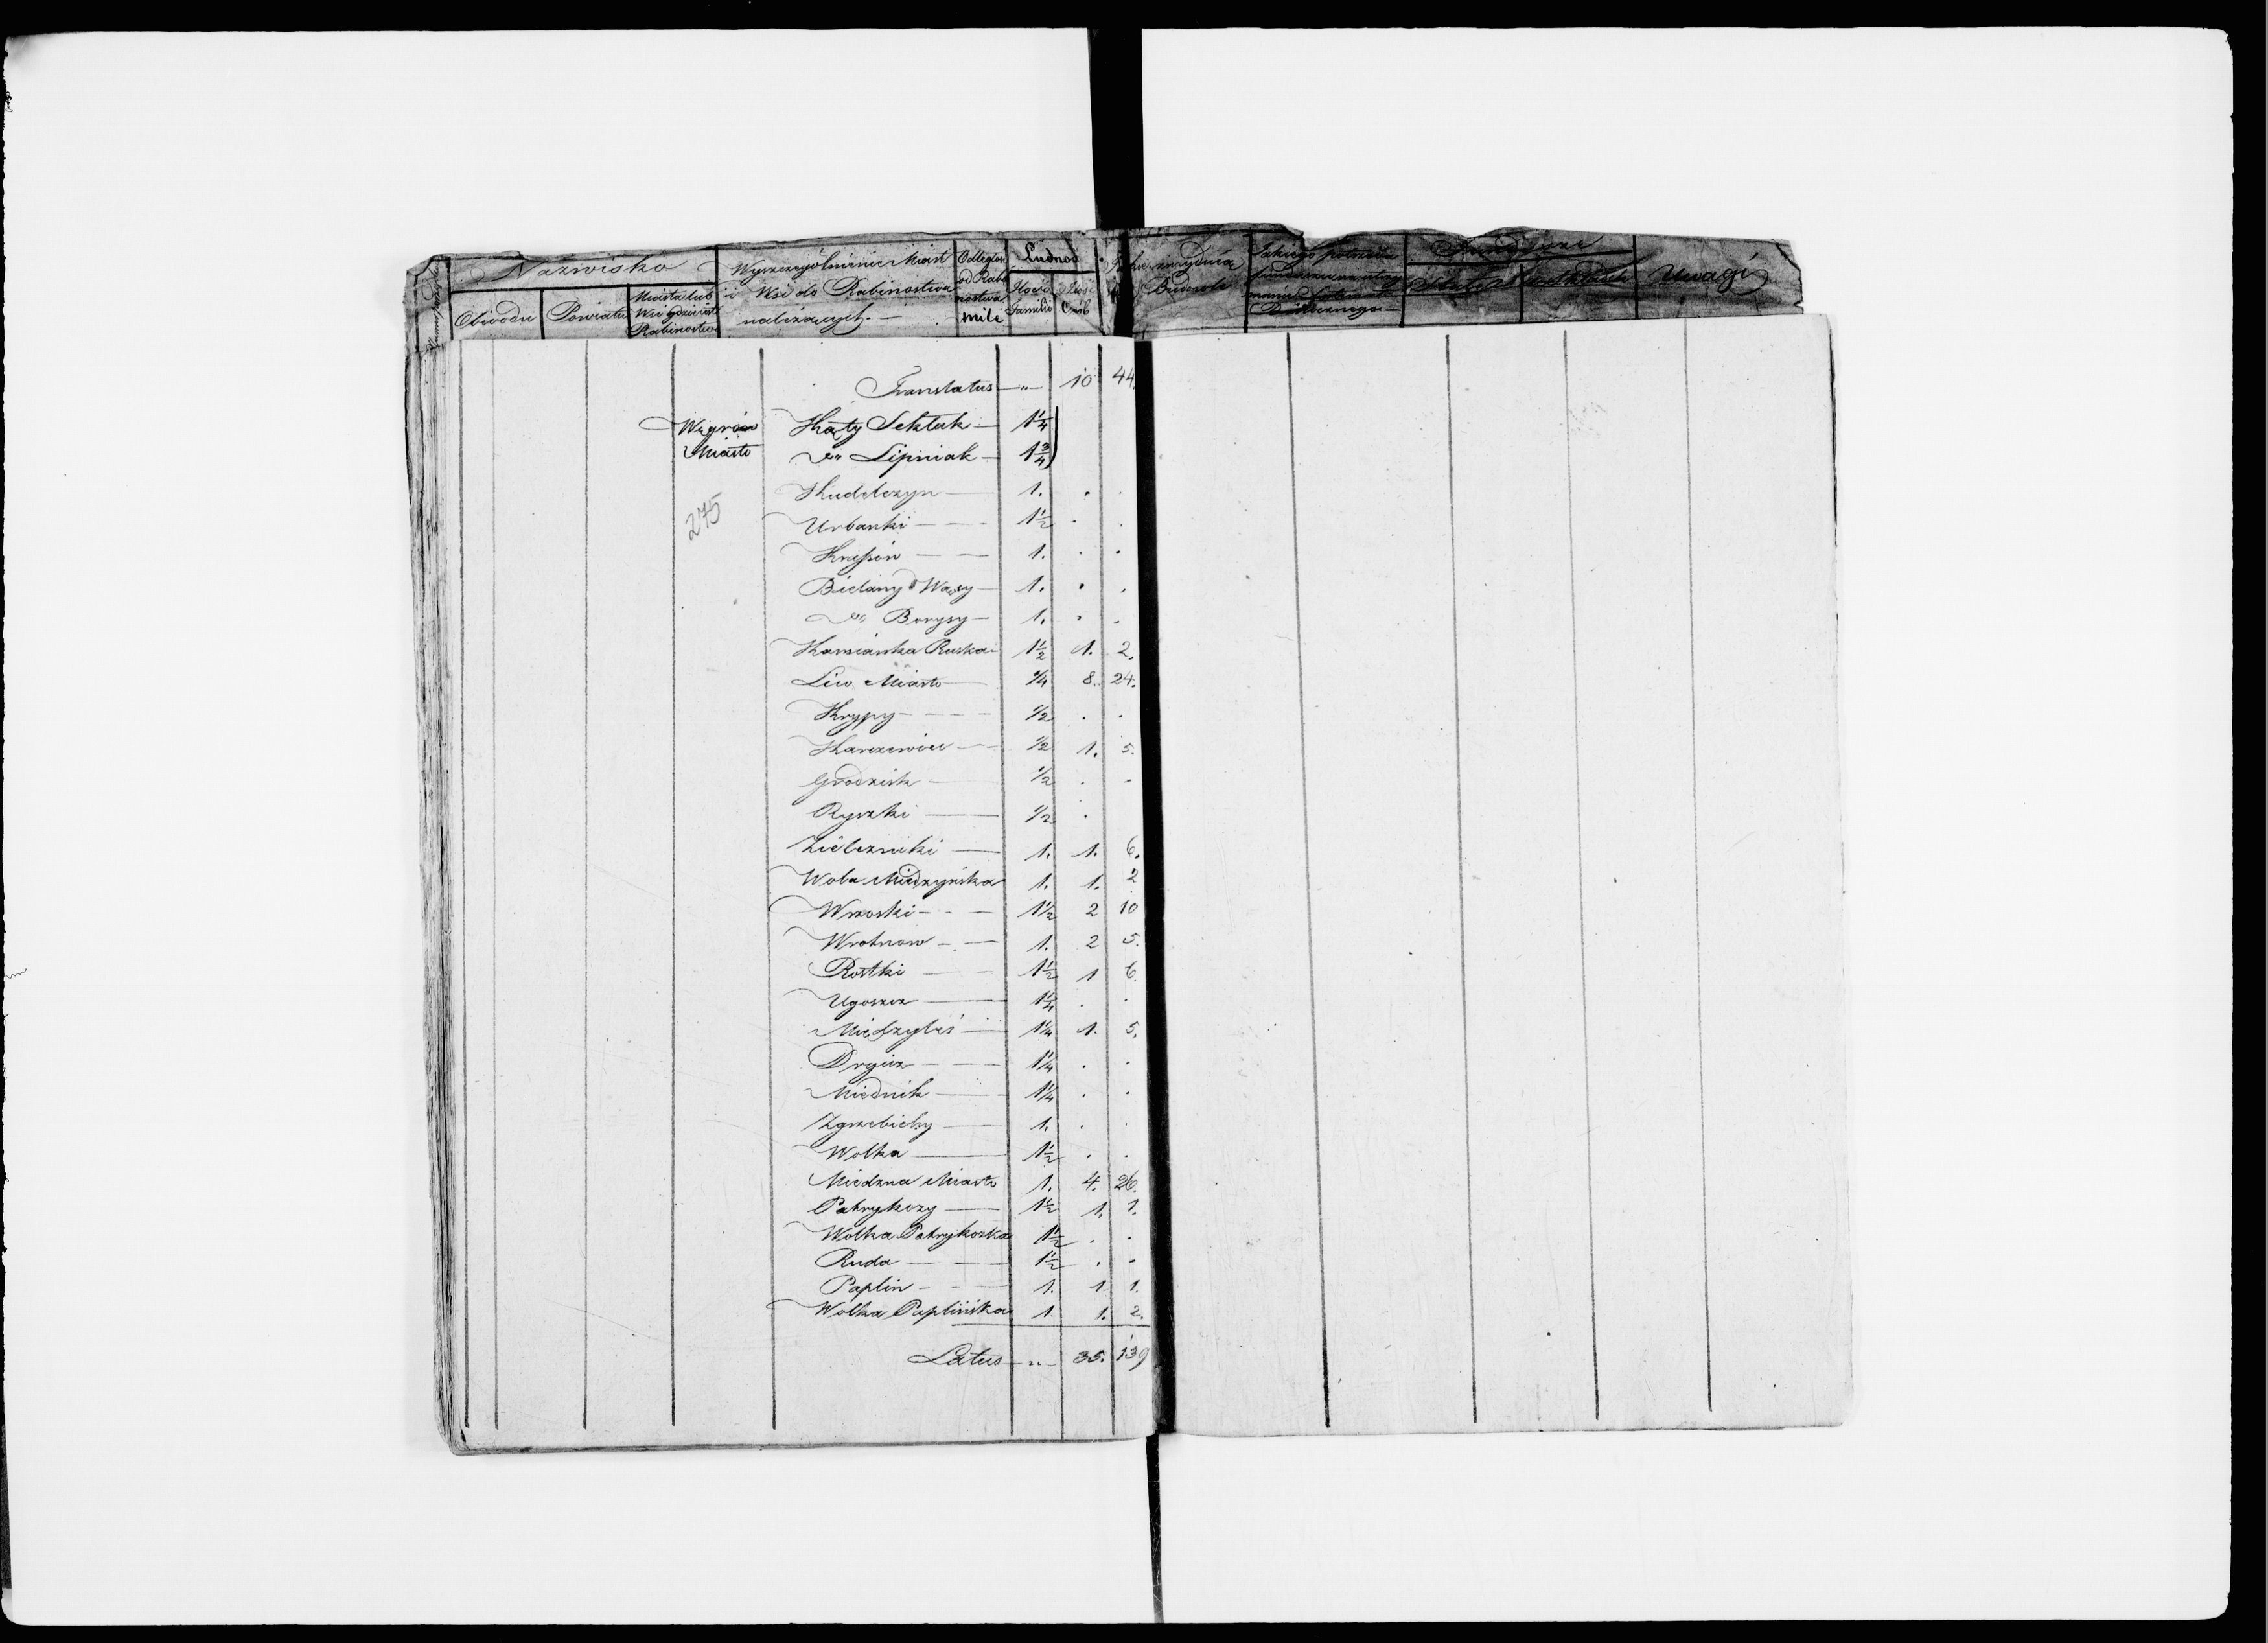 Nazwisko
Obwodu
Powiatu
Miasta lub
Wsi gdzie jest
Rabinostwo
Wyszczególnienie Miast
i Wsi do Rabinostwa
należących.—
Odległość
od Rabi
nostwa
mile
Ludność
Ilość
Familii
Ilość
Osób
Uwagi
Translatus — „ — 10 44.
Węgrów Kąty Sektuk — 1 1/4
Miasto „ Lipniak — 1 3/4
275
Kudelczyn — 1. . .
Urbanki — — 1 1/2 . .
Krassów — — 1. . .
Bielany Wąsy — 1. . .
„ Borysy — 1. . .
Kamianka Ruska — 1 1/2 1. 2.
Liw Miasto — 1/4 8. 24.
Krypy — — — 1/2 . .
Karczewiec — — 1/2 1. 5.
Grodzisk — 1/2 . .
Ryszki — 1/2 .
Zieleźniki — 1. 1. 6.
Wola Miedzyńska 1. 1. 2
Wrzoski — — 1 1/2 2 10
Wrotnow — — 1. 2 5.
Rostki — — 1 1/2 1 6
Ugoszcz — 1 1/4 . .
Międzyleś — 1 1/4 1. 5.
Drgicz — — 1 1/4 . .
Miednik — 1 1/4 . .
Zgrzebichy — 1. . .
Wolka — 1 1/2 . .
Miedzna Miasto 1. 4. 26.
Patrykozy — 1 1/2 1. 1.
Wolka Patrykozka 1 1/2 . .
Ruda — — — 1 1/2 . .
Paplin — — 1. 1 1.
Wolka Paplińska 1. 1. 2.
Latus — „ — 35. 139